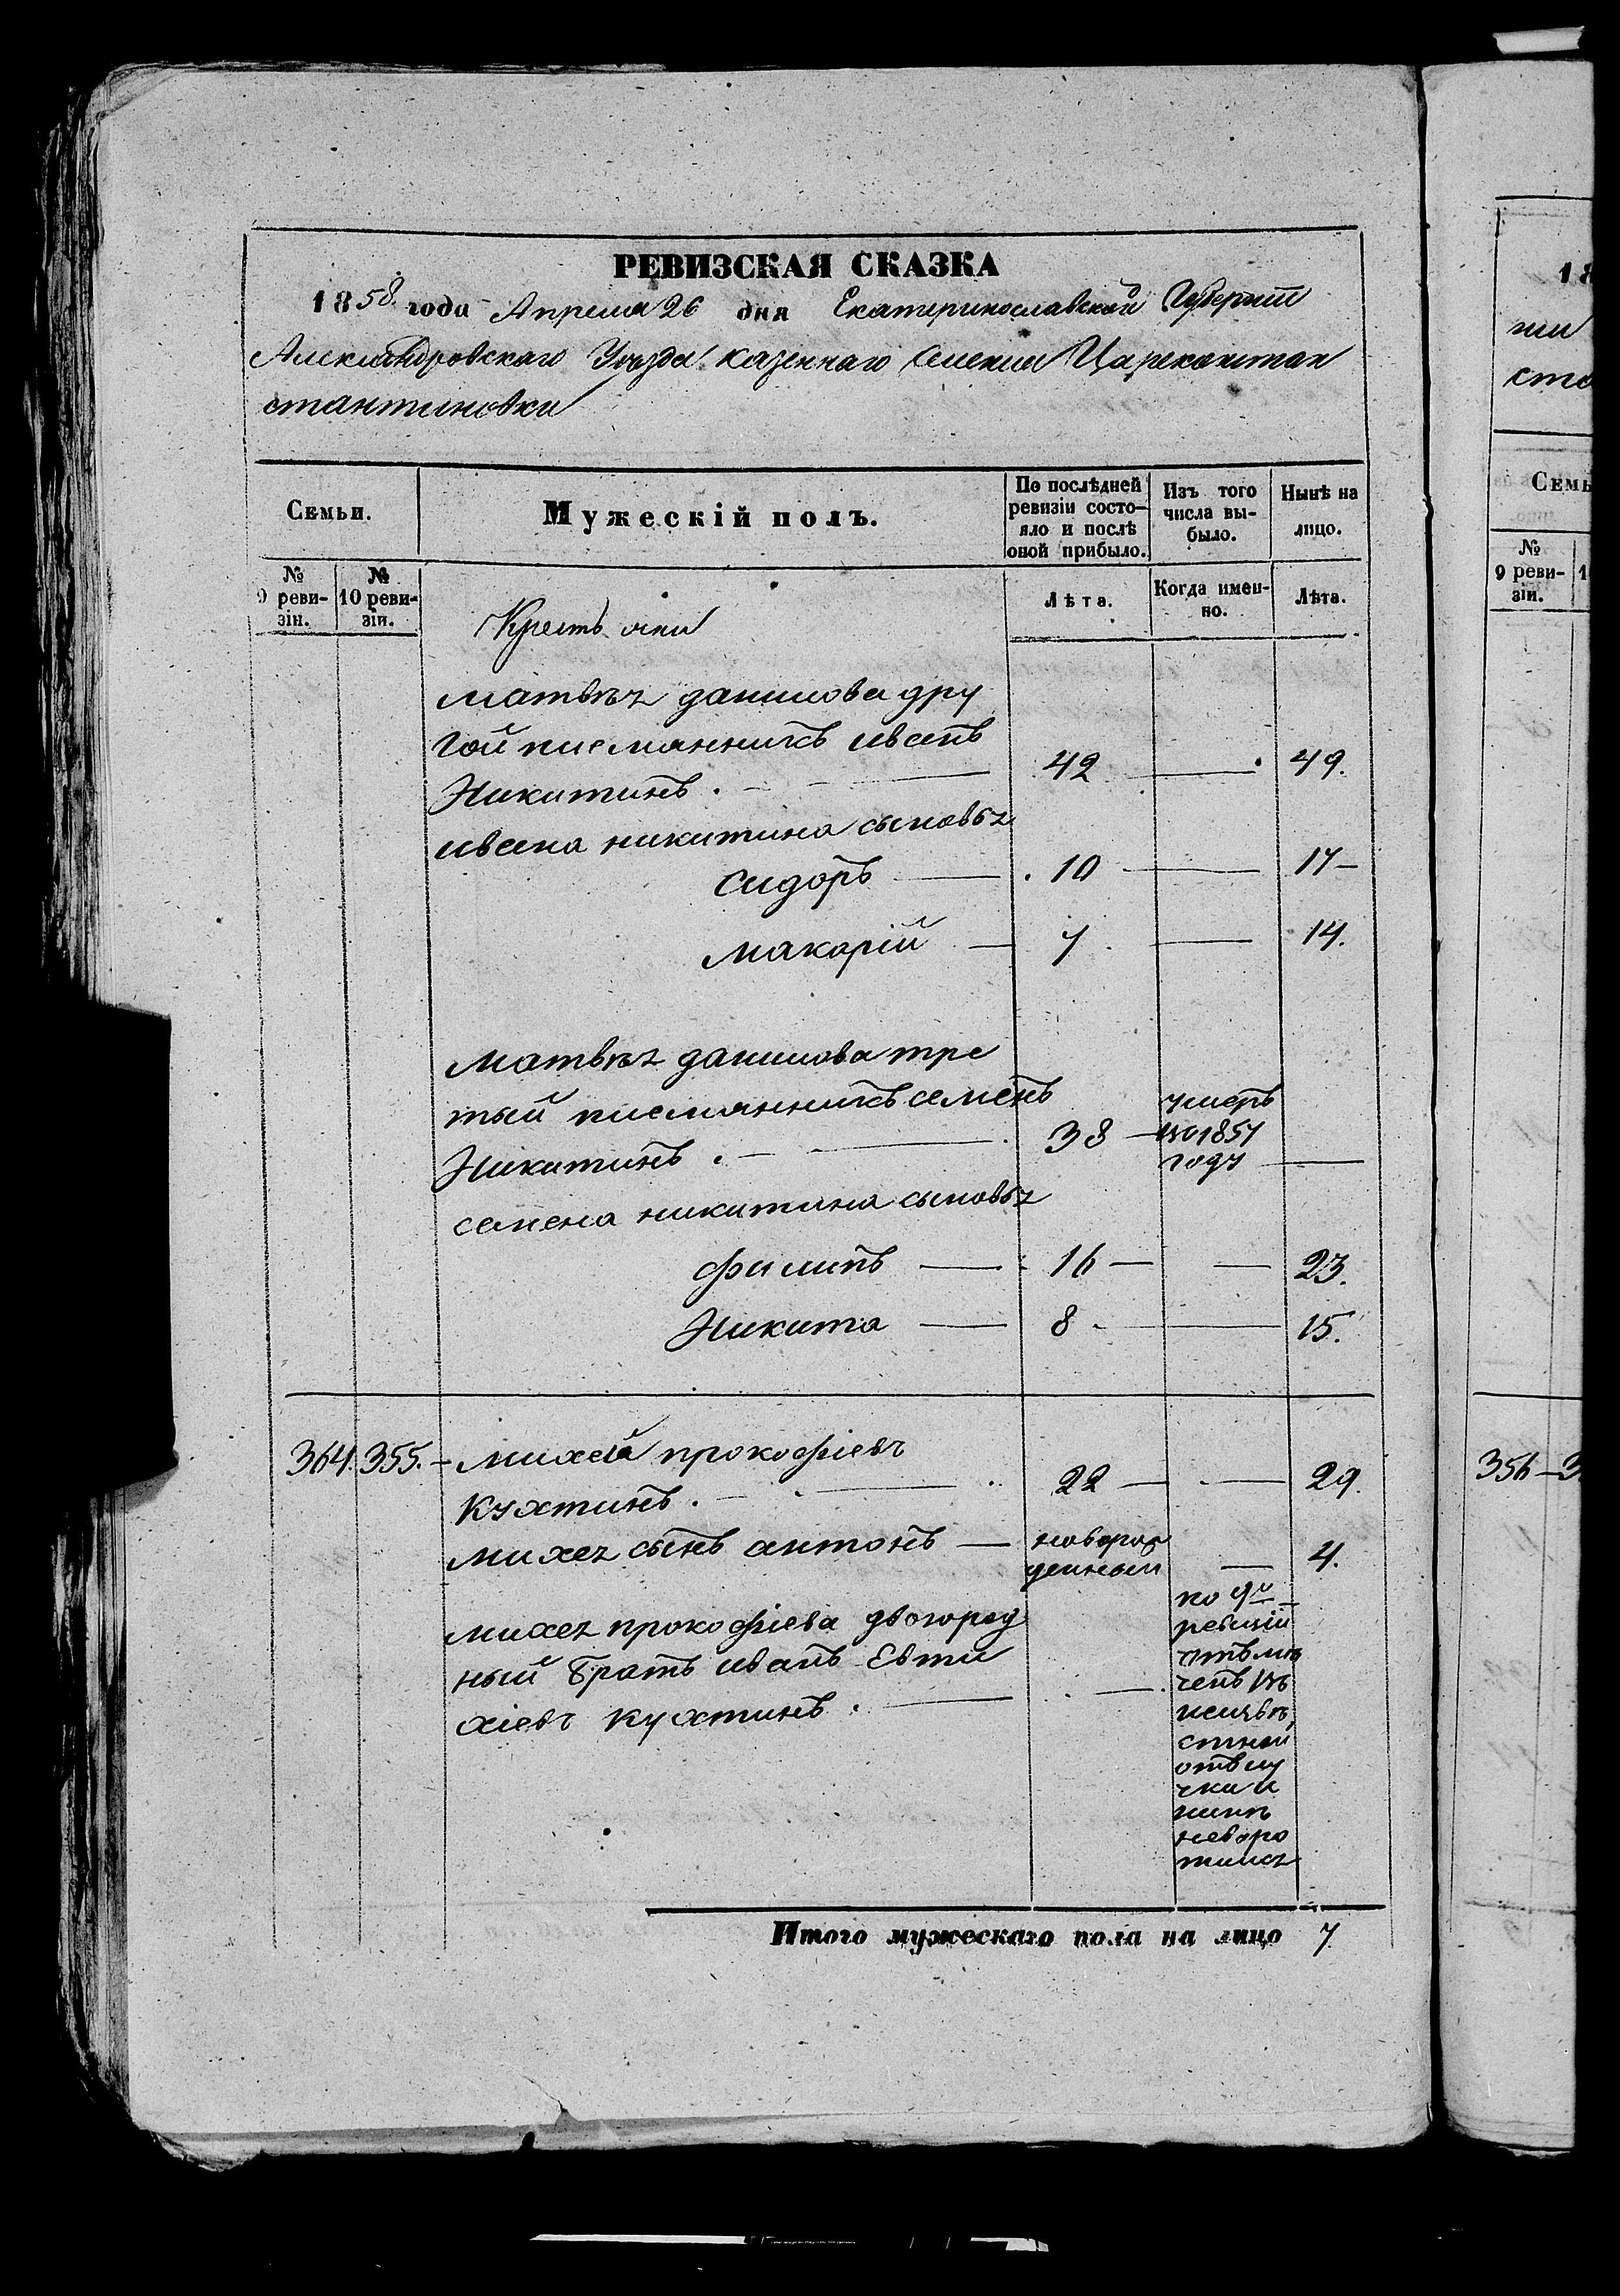 РЕВИЗСКАЯ СКАЗКА
1858 года Апреля 26 дня Екатеринославской Губернии
Александровскаго Уъзда казеннаго селения Цареконстан
стантиновки
Семьи.
Мужескій полъ.
По послѣдней ревизіи состо-яло и послѣ оной прибыло.
Изъ того числа вы-было.
Нынѣ на лицо.
№ 9 реви-зіи.
№ 10 реви-зіи.
Лѣта.
Когда имен-но.
Лѣта.
Крестьяни
матвѣя данилова дру
гой писмянникъ иванъ
Никитинъ. 42 49.
ивана никитина сыновья
сидоръ 10 17
макарій 7 14.
матвѣя данилова тре
тый писмянникъ семенъ
Никитинъ. 38 умеръ во 1857 году
семена никитина сыновья
филипъ 16 23.
Никита 8 15.
364. 355. михей прокофіевъ
кухтинъ. 22 29.
михея сынъ антонъ новорожденный 4.
михея прокофіева двоюрод
ный братъ иванъ Евти
хіевъ кухтинъ.
по 9й
ревизіи
отъмѣ
ченъ въ
неизвѣ
стной
отълу
чки и
нинѣ
неворо
тился
Итого мужескаго пола на лицо 7.
18
ти
ста
Семь
№ 9 реви-зіи.
356